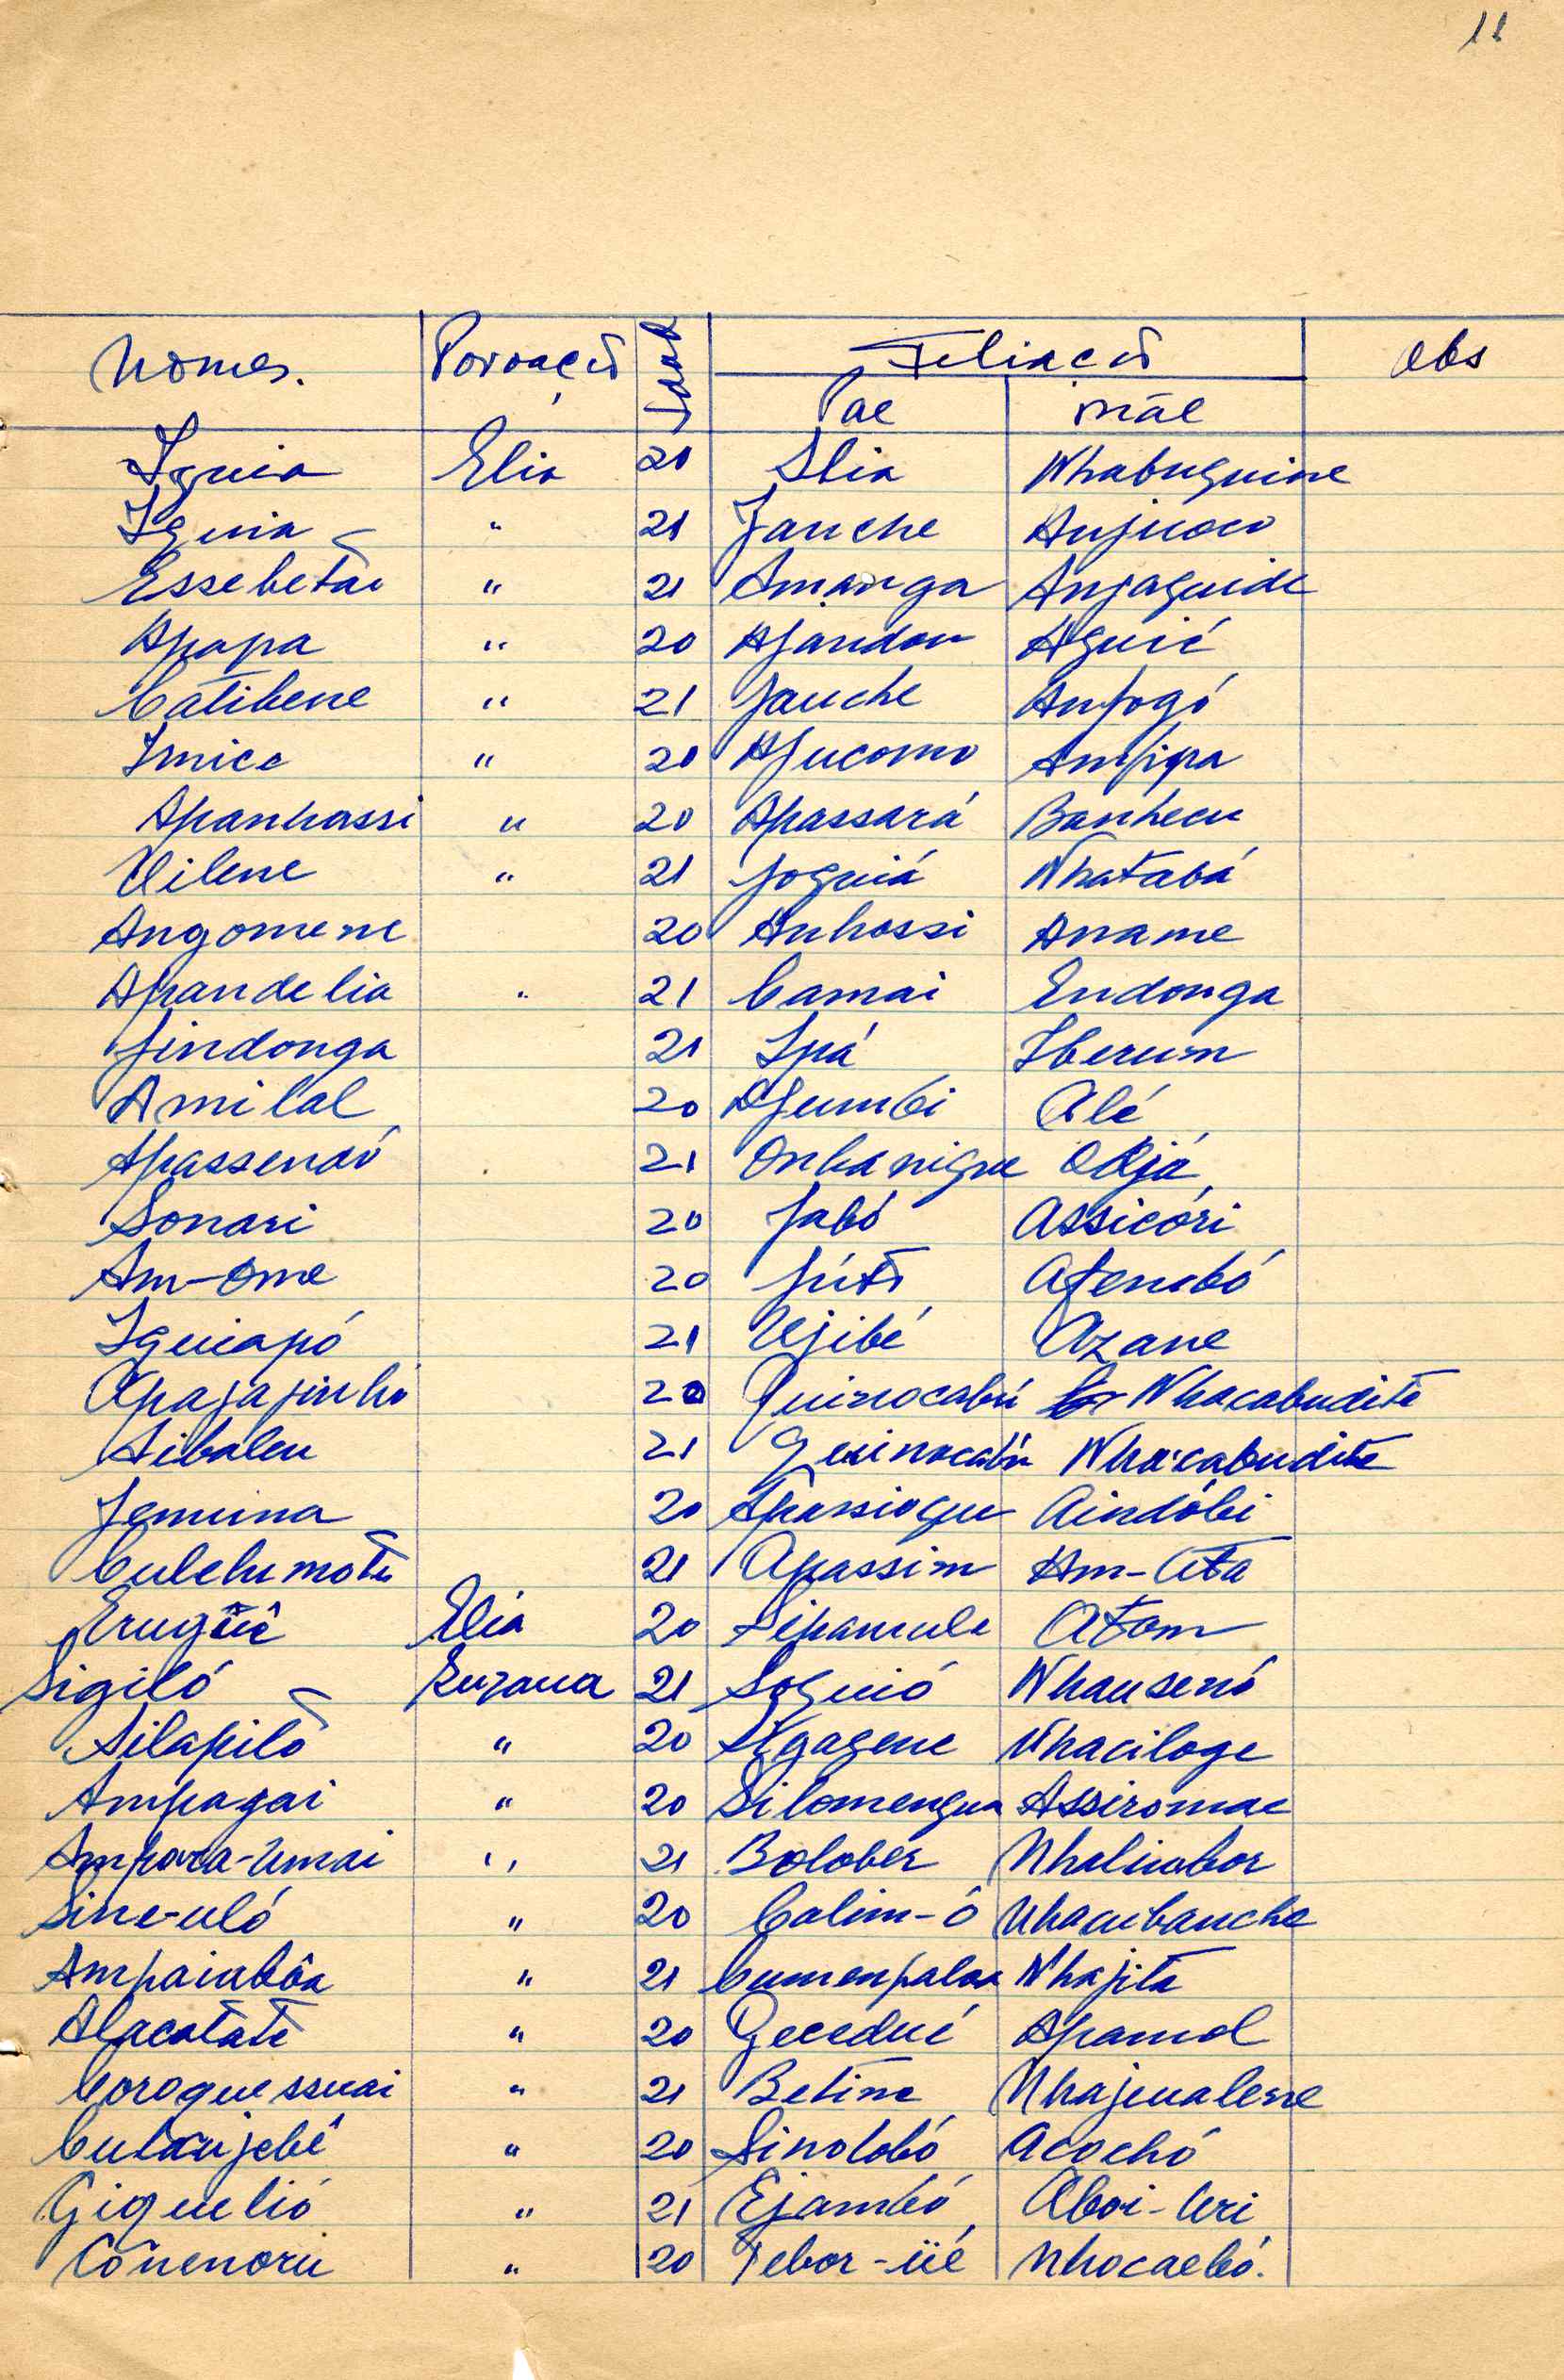 11
Nomes. Povoação Idade Filiação Obs
Pae Mãe
Iguia Elia 21 Slia Nhabuguine
Iguia " 21 Janche Anjucoco
Essebetai " 21 Amanga Anjaguide
Apapa " 20 Ajandou Aguié
Catibene " 21 Jauche Anjogó
Imice " 20 Ajucomo Ampipa
Apanhassi " 20 Apassará Banhecu
Uilene " 21 Joguiá Nhatabá
Angomene 20 Anhossi Aname
Apandelia " 21 Camai Endonga
Jindonga 21 Ipá Iberum
Amilal 20 Ajumbi Alé
Apassendó 21 Onbanigue
Sonari 20 Jabó Assicóri
Am-Ome 20 Atembó
Iguiapó 21 Ujibé Azane
Apajajinho 20 Quinocabú Nhacabudite
Sibaleu 21 Quinocabú Nhacabudite
Jemuina 20 Apassioque Aindóbi
Culelumote 21 Apassim Am-Ata
Eruguê Elia 20 Sipamule Atom
Sigiló Enzana 21 Soguió Nhausenó
Silapito " 20 Sigagene Nhaciloge
Ampagai " 20 Silomengua Assiromae
Ampara-Umai " 21 Bolober Nhaliubor
Sine-uló " 20 Calim-ô Nhacubanche
Ampaiabôa " 21 Cumenpaloa Nhajita
Alacatate " 20 Gecedué Apamol
Coroquessuai " 21 Betine Nhajeualene
Cutaujebê " 20 Sinolobó Acochó
Giguelió " 21 Ejambó Aboi-Uri
Coñenoru " 20 Tebor-üé Nhocaebó.